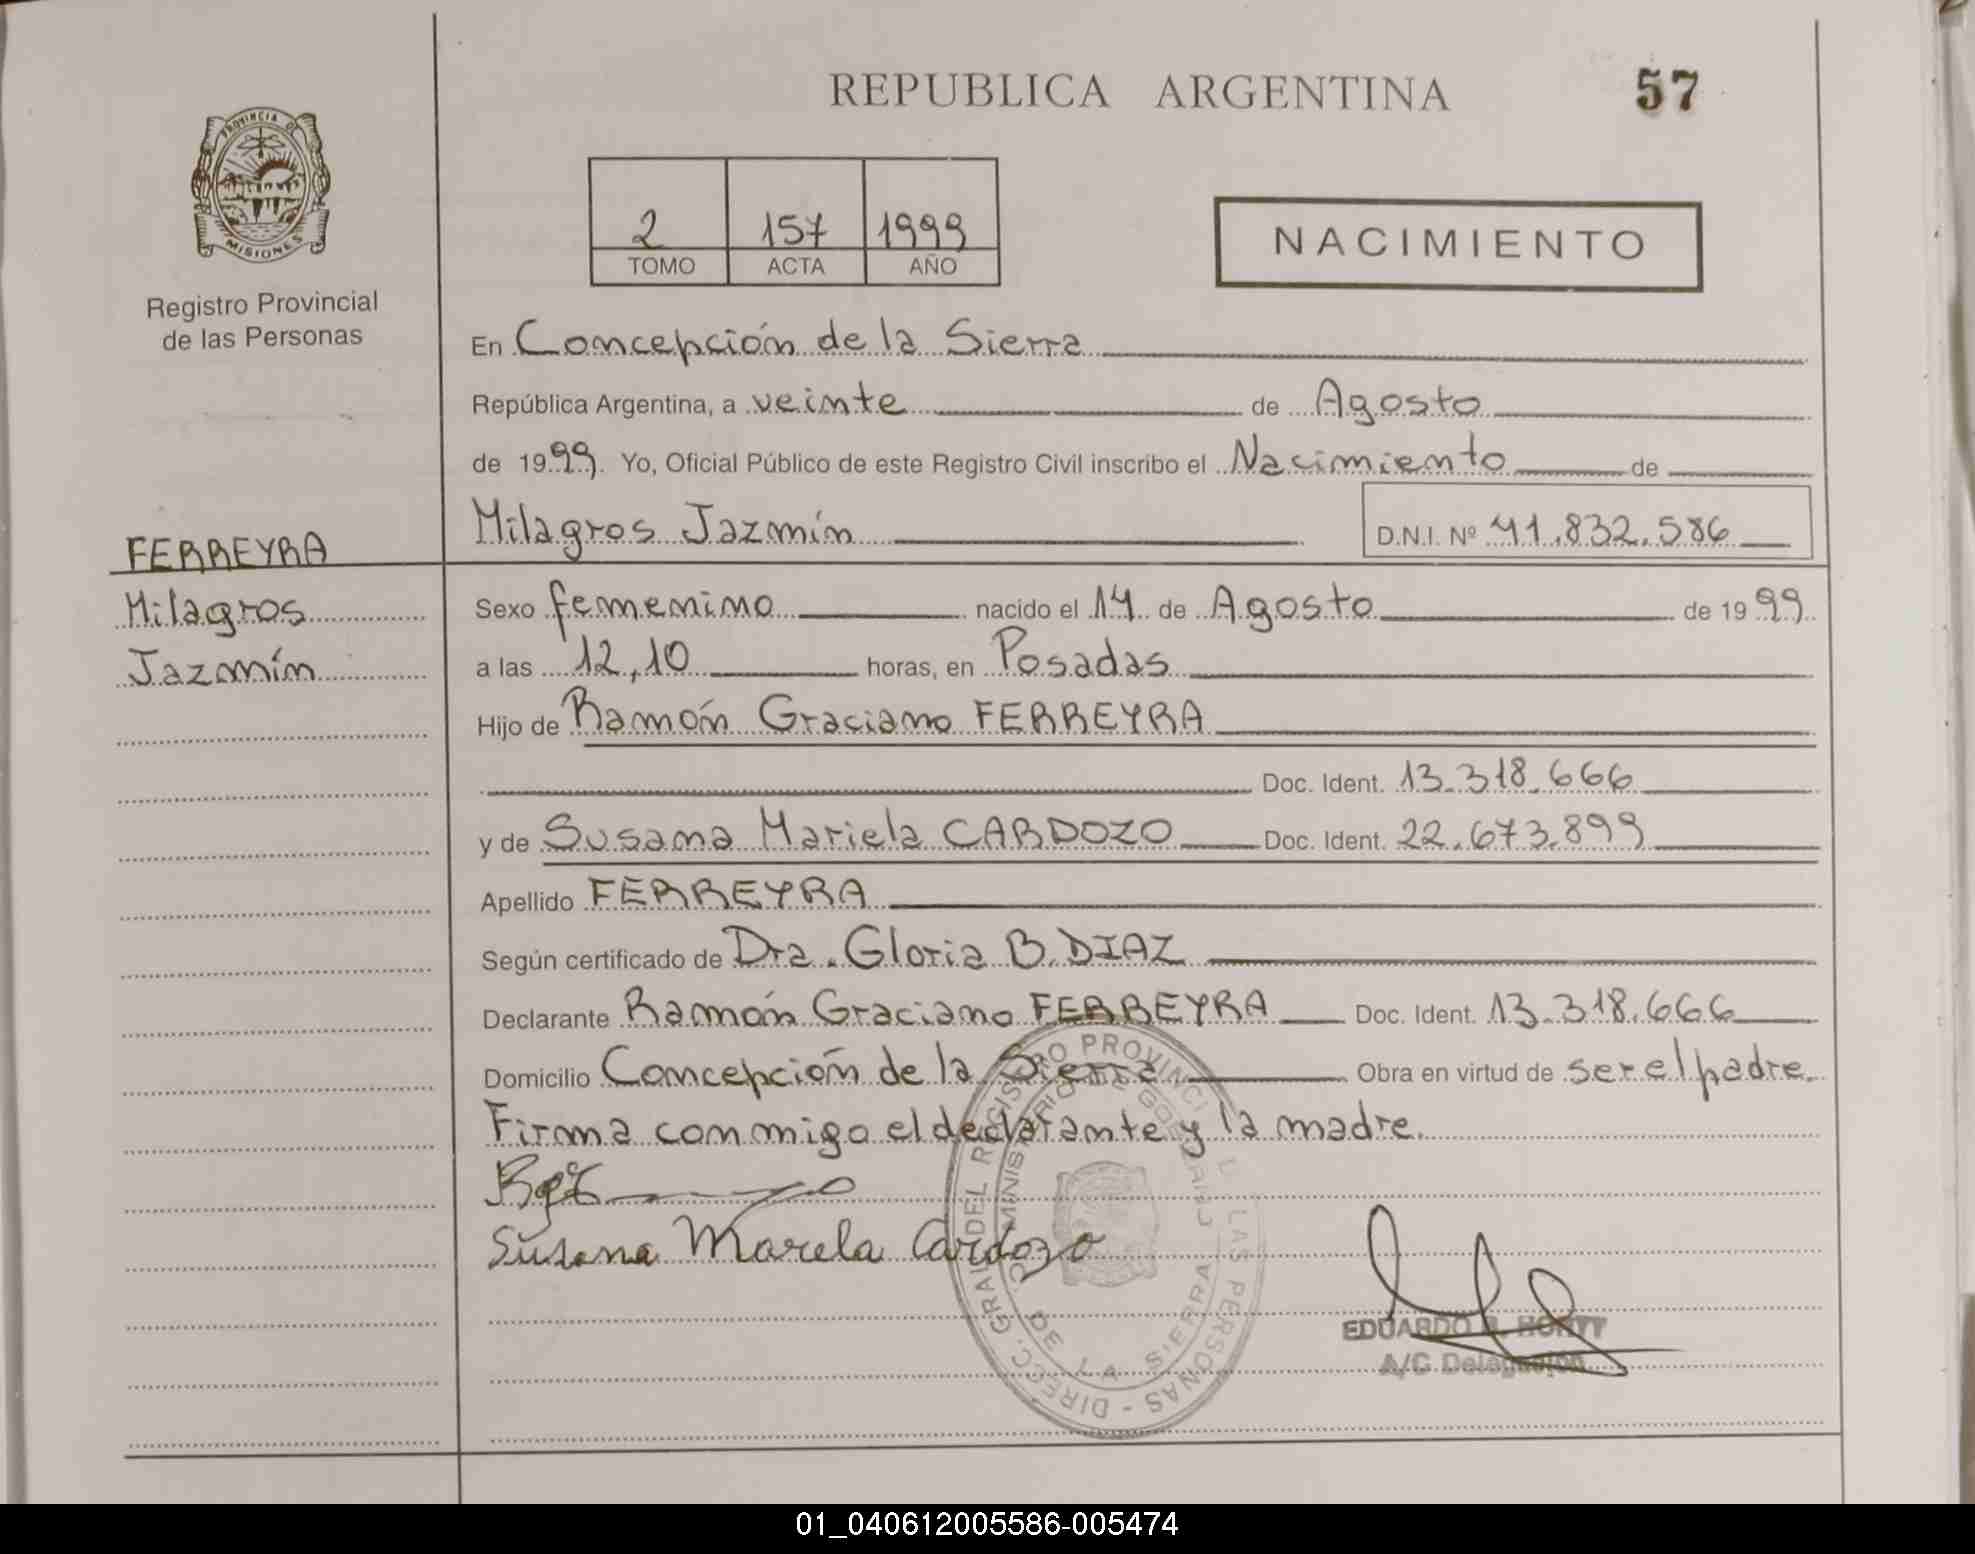 REPUBLICA ARGENTINA
57
PROVINCIA DE MISIONES
Registro Provincial
de las Personas
2 157 1999
TOMO ACTA AÑO
NACIMIENTO
En Concepción de la Sierra
República Argentina, a veinte de Agosto
de 1999. Yo, Oficial Público de este Registro Civil inscribo el Nacimiento de
Milagros Jazmín
D.N.I. Nº 41.832.586
FERREYRA
Milagros
Jazmín
Sexo femenino nacido el 14 de Agosto de 1999.
a las 12,10 horas, en Posadas
Hijo de Ramón Graciano FERREYRA
Doc. Ident. 13.318.666
y de Susana Mariela CARDOZO Doc. Ident. 22.673.899
Apellido FERREYRA
Según certificado de Dra. Gloria B. DIAZ
Declarante Ramón Graciano FERREYRA Doc. Ident. 13.318.666
Domicilio Concepción de la Sierra Obra en virtud de ser el padre.
Firma conmigo el declarante y la madre.
Susana Mariela Cardozo
DIREC. GRAL DEL REGISTRO PROVINCIAL LAS PERSONAS -
MINISTERIO DE GOBIERNO
DE LA SIERRA
EDUARDO
A/C Delegación
01_040612005586-005474